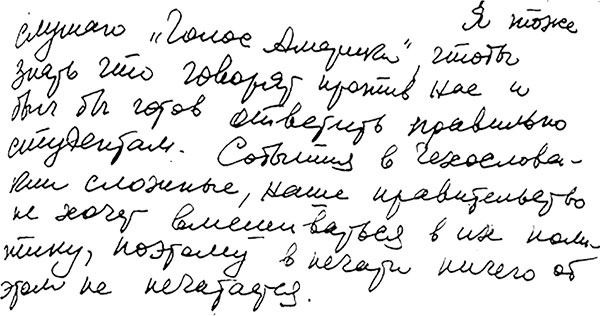 Я тоже
слушаю „Голос Америки“, чтобы
знать что говорят против нас и
был бы готов ответить правильно
студентам. События в Чехослова-
кии сложные, наше правительство
не хочет вмешиваться в их поли-
тику, поэтому в печати ничего об
этом не печатается.